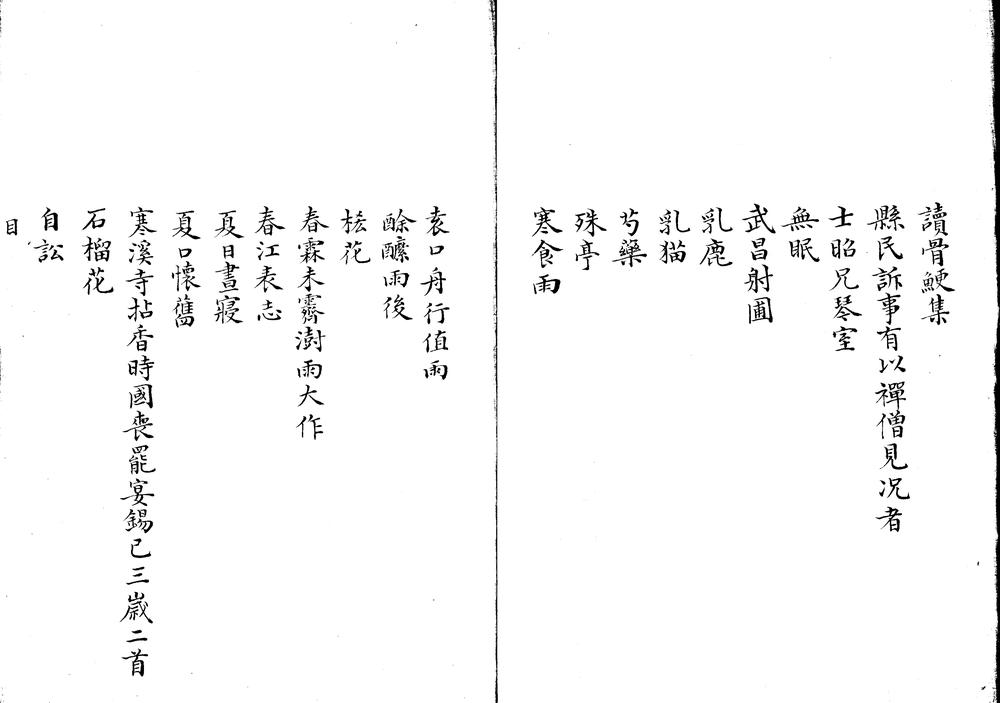 讀骨鯁集
縣民訴事有以禪僧見况者
士昭兄琴室
無眠
武昌射圃
乳鹿
乳猫
芍藥
殊亭
寒食雨
袁口舟行值雨
酴醿雨後
桉花
春霖未霽澍雨大作
春江表志
夏日晝寢
夏口懷舊
寒溪寺拈香時國喪罷宴錫已三歲二首
石榴花
自訟
目